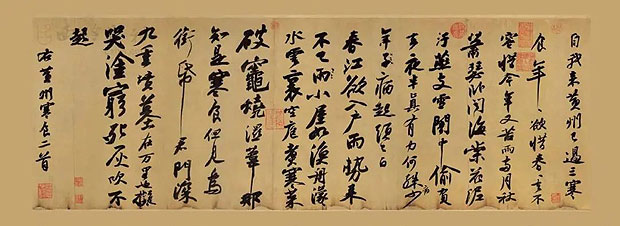 自我来黄州已過三寒
食年〻欲惜春〻去不
容惜今年又苦雨兩月秋
蕭瑟卧聞海棠花泥
汙燕支雪闇中偷負
去夜半真有力何殊少
年子病起須已白
春江欲入戶雨勢来
不已雨小屋如漁舟濛〻
水雲裏空庖煮寒菜
破竈燒濕葦那
知是寒食但見烏
銜帋君門深
九重墳墓在万里也擬
哭塗窮死灰吹不
起
右黄州寒食二首